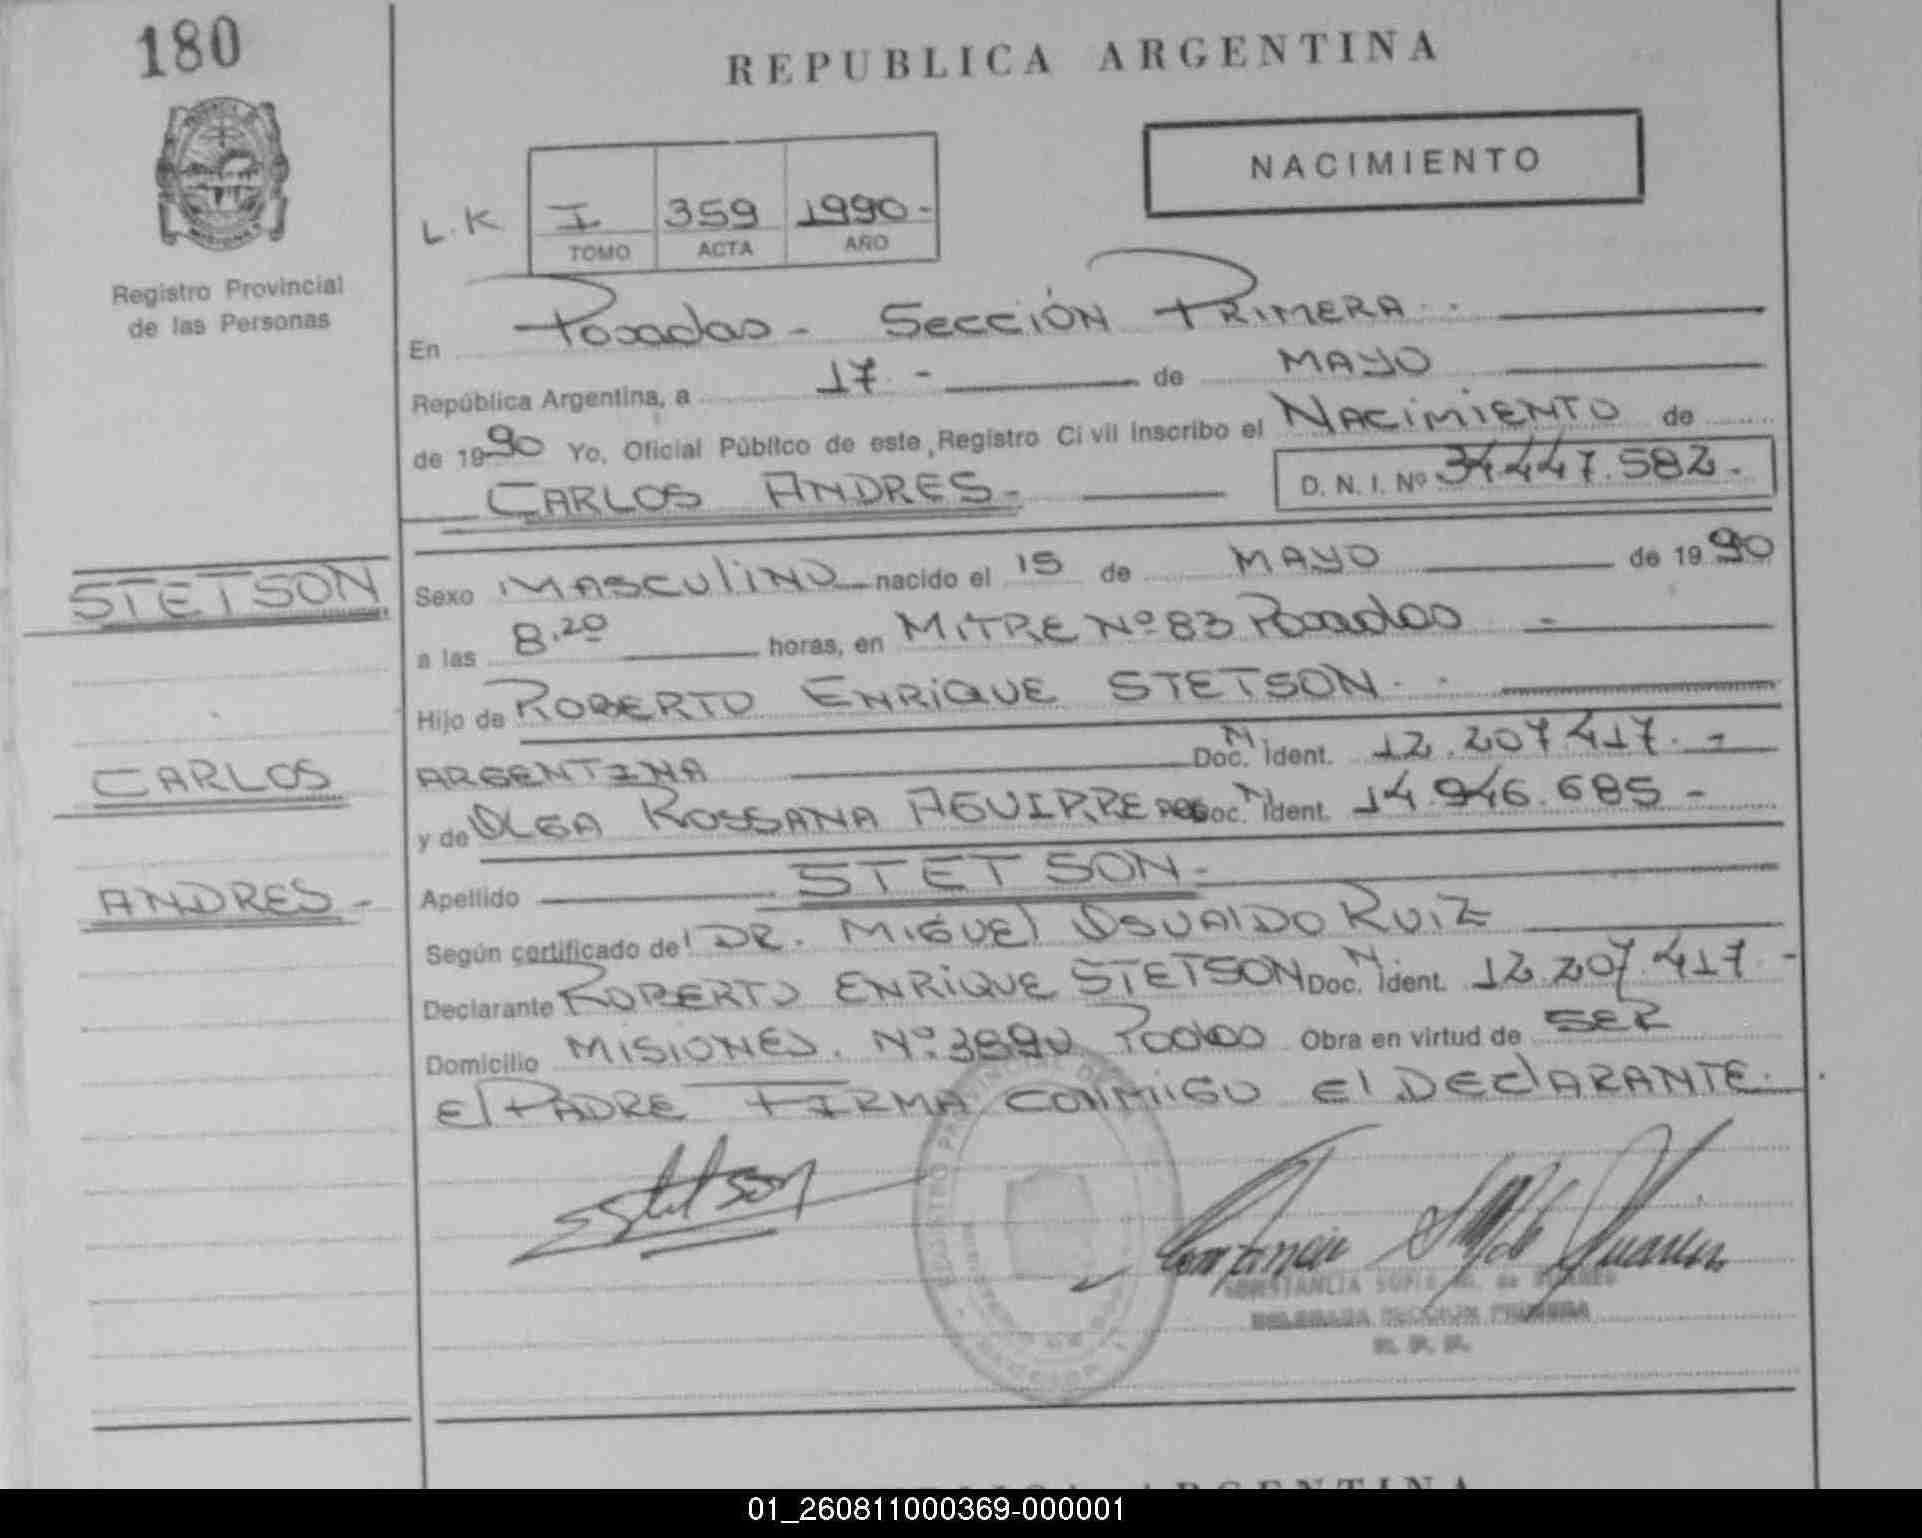 180
REPUBLICA ARGENTINA
NACIMIENTO
L.K I 359 1990-
TOMO ACTA AÑO
Registro Provincial
de las Personas
En Posadas - SECCIÓN PRIMERA
República Argentina, a 17 - de MAYO
de 1990 Yo, Oficial Público de este Registro Civil inscribo el NACIMIENTO de
CARLOS ANDRES - D. N. I. Nº 34.447.582 -
STETSON
Sexo MASCULINO nacido el 15 de MAYO de 1990
a las 8.20 horas, en MITRE Nº 83 Posadas -
Hijo de ROBERTO ENRIQUE STETSON
CARLOS
ARGENTINA Doc. N Ident. 12.207.417. -
y de OLGA ROSSANA AGUIRRE Doc. N Ident. 14.946.685 -
ANDRES -
Apellido STETSON -
Según certificado del DR. MIGUEL OSVALDO RUIZ
Declarante ROBERTO ENRIQUE STETSON Doc. N Ident. 12.207.417 -
Domicilio MISIONES. Nº 3890 Posadas Obra en virtud de SER
El PADRE FIRMA CONMIGO El DEClARANTE.
Stetson
CONSTANCIA SOFIA M. de SUAREZ
DELEGADA SECCION PRIMERA
R. P. P.
REGISTRO PROVINCIAL DE
01_260811000369-000001